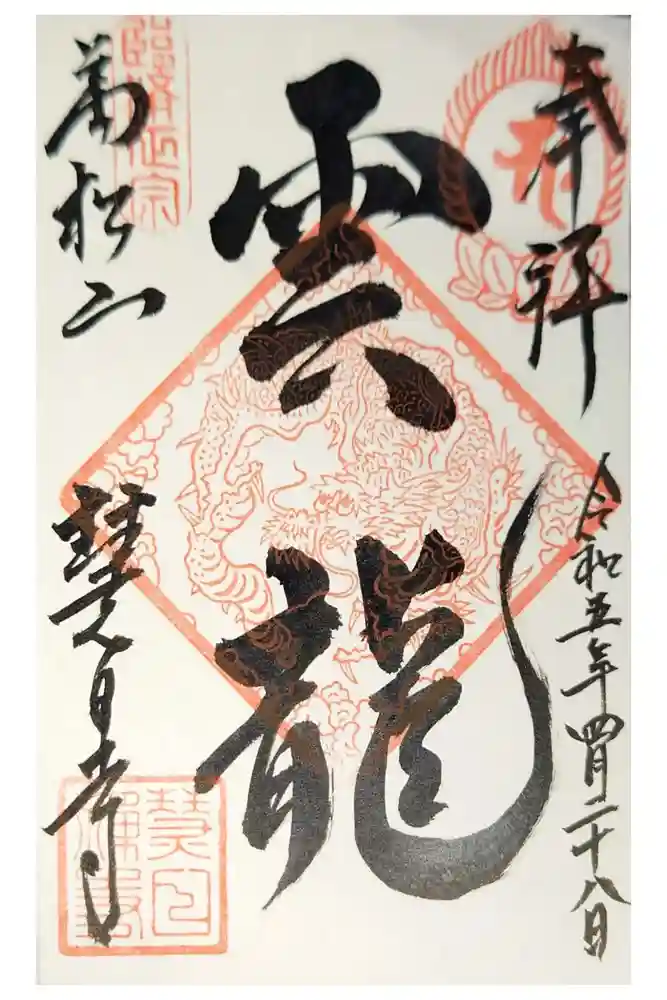 奉拝
令和五年四月二十八日
雲龍
萬松山
慧日寺
臨濟正宗
慧日
禅寺